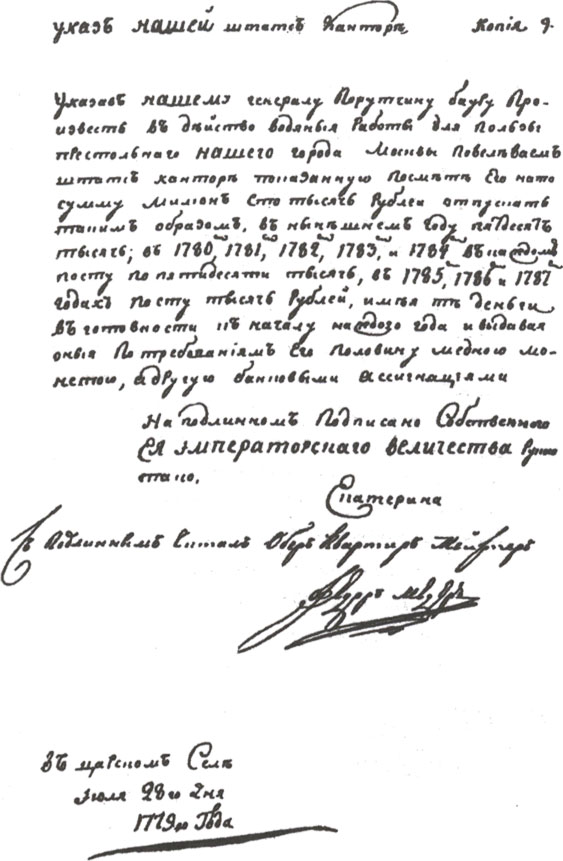 указъ нашей штатсъ Канторѣ Копія
Указавъ нашему генералу Порутчику бауру Про-
известь въ дѣйство водяныя Работы для пользы
престольнаго нашего города Москвы повелѣваемъ
штатсъ канторѣ показанную посмѣтѣ Его нато
сумму милионъ сто тысячь Рублей отпускать
такимъ образомъ, въ нынѣшнемъ году пятдесятъ
тысячь; въ 1780, 1781, 1782, 1783, и 1784 въкаждомъ
посту по пятидесяти тысячь, въ 1785, 1786 и 1787
годахъ по сту тысячь Рублей, имѣя тѣ деньги
въ готовности къ началу каждого года и выдавая
оныя По требованіямъ Его Половину медною мо-
нетою, а другую банковыми Ассигнаціями
На подлинномъ Подписано Собственного
ЕЯ императорскаго величества Руко
тако,
Екатерина
Съ Подлиннымъ Читалъ Оберъ Квартиръ Мейстеръ
въ царскомъ Селѣ
июля 28го дня
1779го Года